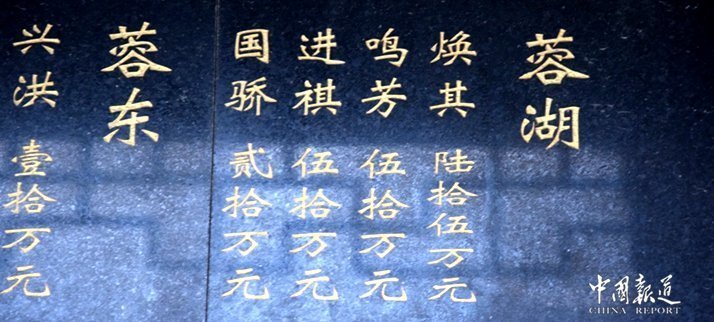 蓉湖
焕其 陆拾伍万元
鸣芳 伍拾万元
进祺 伍拾万元
国骄 贰拾万元
蓉东
兴洪 壹拾万元
中国报道
CHINA REPORT